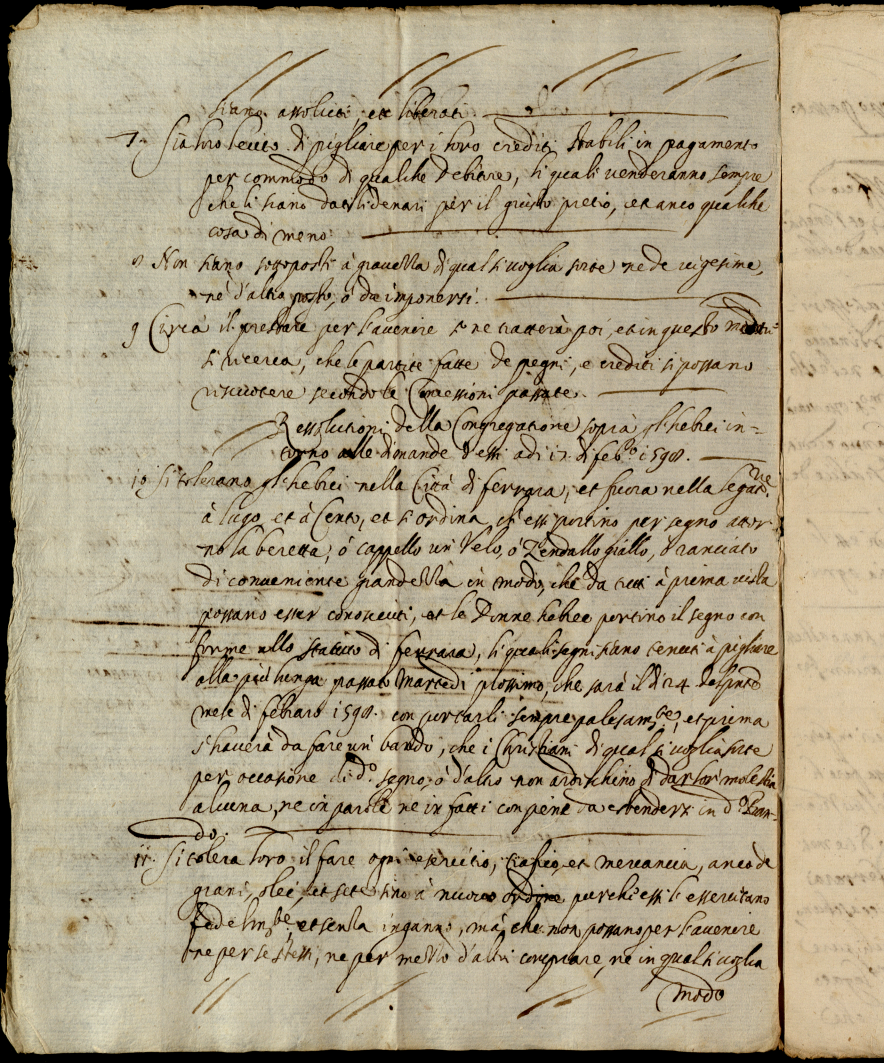 siano assoluti, et liberati.
7. Sia loro lecito di pigliare per i loro crediti stabili in pagamento
per commodo di qualche debitore, li quali venderanno sempre
che li siano dati li denari per il giusto pretio, et anco qualche
cosa di meno.
8 Non siano sottoposti à gravezza di qual si voglia sorte ne de vigesime,
ne d'altro posto, ò da imponersi.
9 Circa il prestare per l'avenire se ne trattera poi, et in questo
si ricerca, che le partite fatte de pegni, e crediti si possano
riscuotere secondo le Concessioni passate.
Ressolutioni della Congregatione sopra gl'hebrei in=
torno alle dimande d'essi adi 17. di feb.o 1598.
10. Si tolerano gl'hebrei nella Città di ferrara, et fuora nella
à lugo, et à Cento, et si ordina, ch'essi portino per segno attor=
no la beretta, ò cappello un Velo, ò Zendallo giallo, ò ranciato
di conveniente grandezza in modo, che da tutti à prima vista
possano esser conosciuti, et le Donne hebree portino il segno con
forme allo statuto di ferrara, li quali segni siano tenuti à pigliare
alla più lunga passato Martedi prossimo, che sarà il di 24. del
mese di febraro 1598. con portarli sempre palesam.te, et prima
s'haverà da fare un bando, che i Christiani di qual si voglia sorte
per occasione di d.o segno, ò d'altro non ardischino di dar lor molestia
alcuna, ne in parole ne in fatti con pene da estendersi in d.o Ban=
do.
11. Si tolera loro il fare ogni esercitio, trafico, et mercancia, anco de
grani, olei, et sete sino à nuovo ordine purche essi li essercitano
fedelm.te, et senza inganno, mà, che non possano per l'avenire
ne per se stessi, ne per mezzo d'altri comprare, ne in qual si voglia
modo